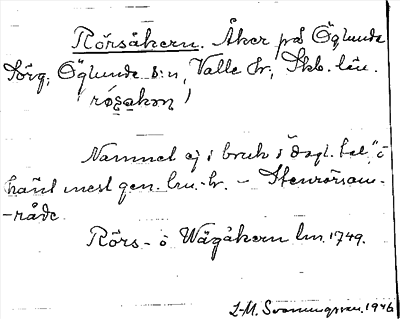 Rörsåkern. Åker på Öglunda
Törq, Öglunda s:n, Valle hr, Skb. län.
(rǿsakọn)
Namnet ej i bruk i "dagl. tal" o
hänt mest gen. lm.-hr. – Stenrörsom-
-råde.
Rörs- ö Wägåkern lm. 1749.
I-M. Svenningsson. 1946